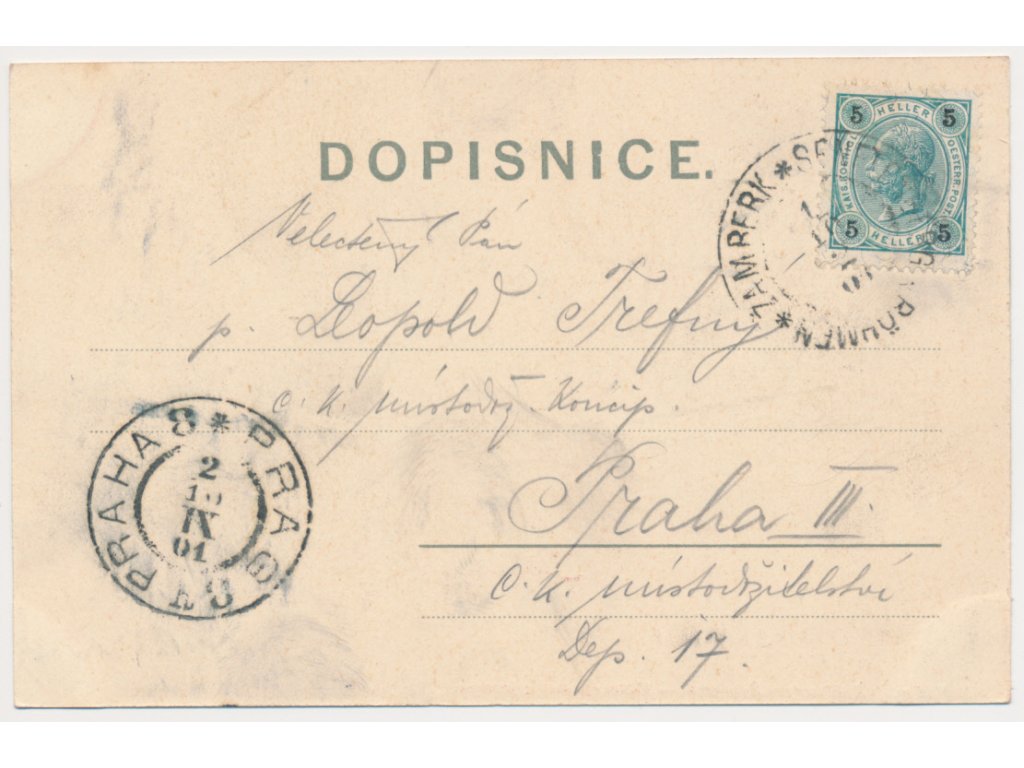 DOPISNICE.
5 HELLER 5
KAIS. KOENIGL. OESTERR. POST.
5 HELLER 5
ZAMBERK * BÖHMEN *
01
Velectěný Pán
p. Leopold Trefný
c. k. místodrž. koncip.
Praha III.
C. K. místodržitelství
Dep. 17.
PRAHA 8 * PRAG 8
2
IX
01